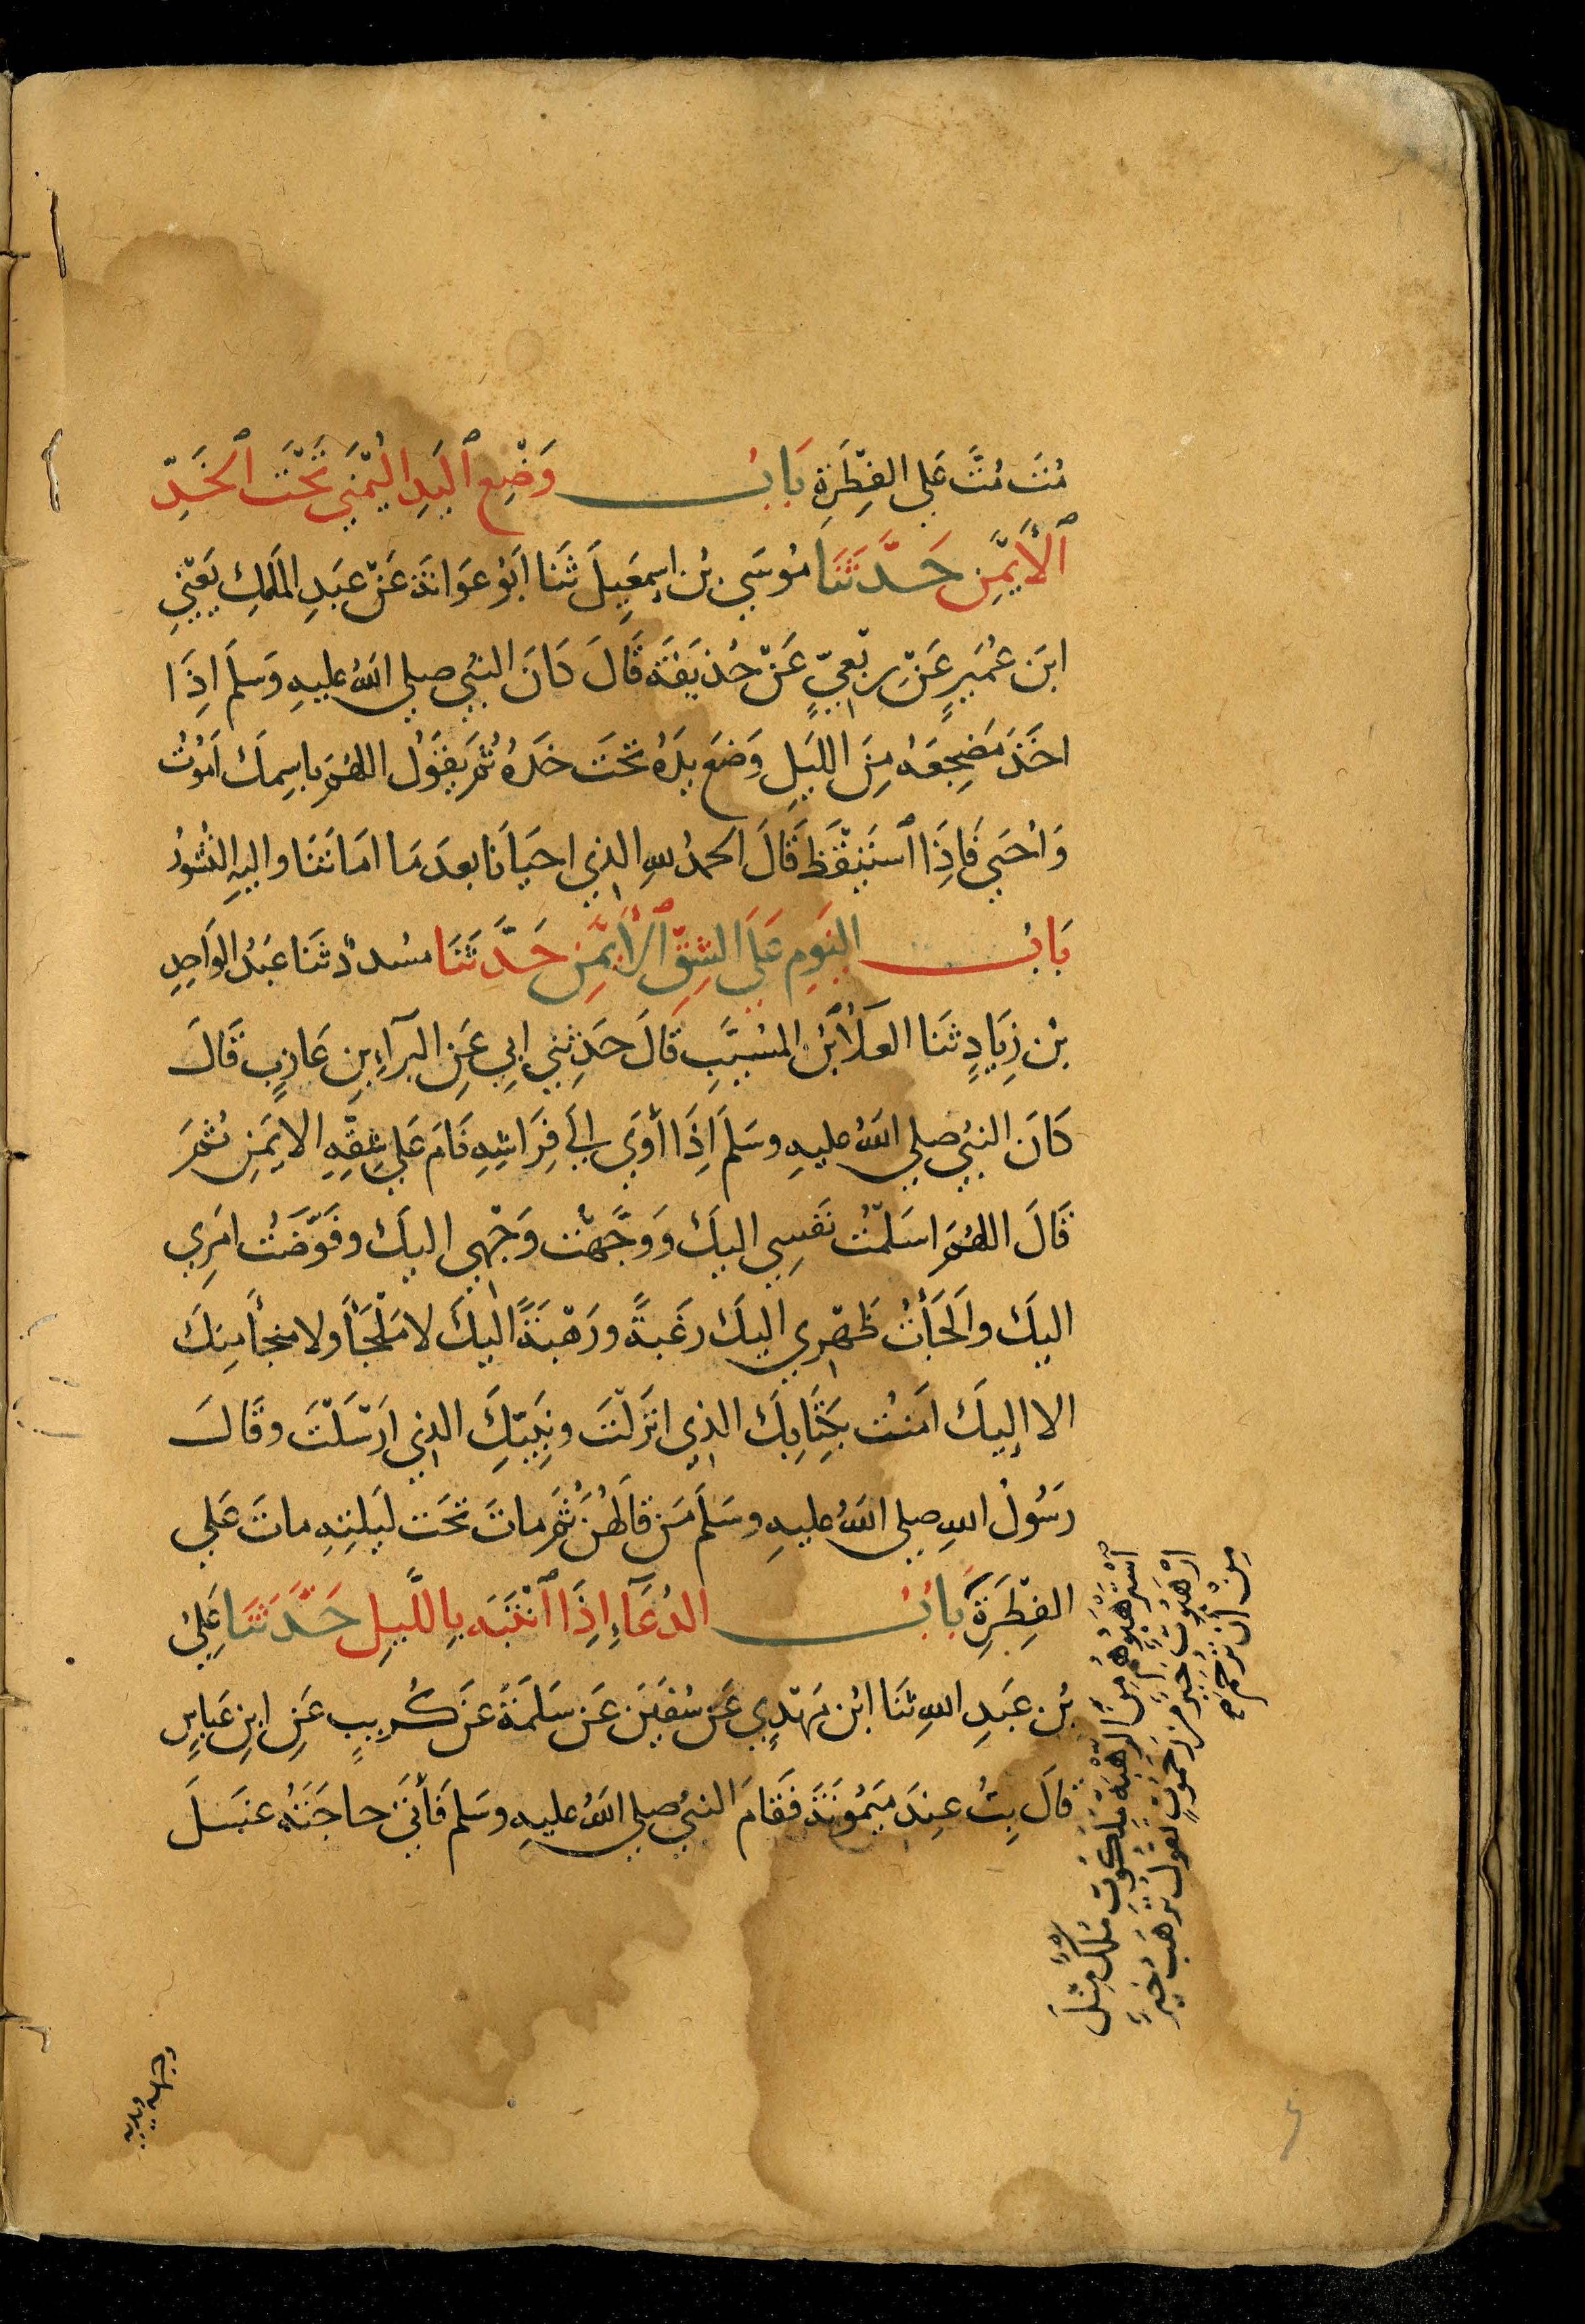 مُتَ مُتَّ عَلَى الفِطْرَةِ بَابُ وَضْعِ ٱليَدِ اليُمْنَى تَحْتَ ٱلخَدِّ
ٱلأَيْمَنِ حَدَّثَنَا مُوسَى بْنُ اسمٰعِيلَ ثَنَا ابُو عَوَانَةَ عَنْ عَبدِ المَلِكِ يَعْنِي
ابنَ عُمَيرٍ عَنْ رِبْعِيٍّ عَنْ حُذيفَةَ قَالَ كَانَ النبيُّ صلى اللهُ عليهِ وَسَلَّمَ اِذَا
اخَذَ مَضجَعَهُ مِنَ الليَلِ وَضَعَ يدَهُ تحْتَ خَدهِ ثُمَّ يقُولُ اللهُمَّ باسِمكَ امَوُتُ
وَاحْيَى فَاِذَا ٱستَيْقَظَ قَالَ الحمدُ للهِ الذي احيَانَا بعدَ مَا امَاتَنَا واليهِ النُشُورُ
بَابُ النَومِ عَلَى الشِقِّ ٱلأَيْمَنِ حَدَّثَنَا مسُددٌ ثنَا عَبْدُ الوَاحِدِ
بْنُ زِيَادٍ ثنَا العَلَاُ بْنُ المسُيَّبِ قَالَ حَدثنِي ابِي عَنِ البَرآءِ بنِ عَازِبٍ قَالَ
كَانَ النبيُّ صلى اللهُ عليهِ وسَلمَ اِذَا أوَى الَى فِرَاشِهِ نَامَ عَلى شِقِّهِ الايمَنِ ثمَّ
قَالَ اللهُمَّ اسَلَمْتُ نَفسِي اليكَ وَوَجَّهْتُ وَجْهِي اليكَ وفَوَّضْتُ امَرِي
اليكَ والَجَأتُ ظَهْرِي اليكَ رَغبَةً ورَهْبَةً اليكَ لا مَلْجَأَ ولا منجأَ مِنكَ
الا اليكَ امَنتُ بكِتَابِكَ الذِي انزَلْتَ ونبِيّكَ الذِي ارَسَلْتَ وقَالَ
رَسُولُ اللهِ صلى اللهُ عليهِ وسَلَمَ مَن قَالَهُنَّ ثُمَّ ماتَ تحَتَ ليَلتِهِ ماتَ عَلى
الفِطْرَةِ بَابُ الدُعَآءِ اِذَا ٱنْتَبَهَ بِاللَّيلِ حَدَّثَنَا عَلِيُّ
بْنُ عَبدِ اللهِ ثنَا ابْنُ مَهْدِيٍ عَن سُفيَنَ عَن سَلَمَةَ عَن كُريبٍ عَنِ ابنِ عَبَاسٍ
قالَ بِتُّ عِندَ مَيمُونَةَ فَقَامَ النبيُّ صلى اللهُ عليهِ وسَلمَ فَأتَى حاجَتَهُ غسَلَ
ٱسْتَرْهَبُوهُمْ مِنَ الرَّهْبَةِ مَلَكُوتٌ مُلكٌ مِثلَ
رَهَبُوتٌ خَيرٌ مِن رَحَمُوتٍ تقولُ تَرهَبُ خيرٌ
مِنْ أن تَرحَمَ
وجهه ويديه